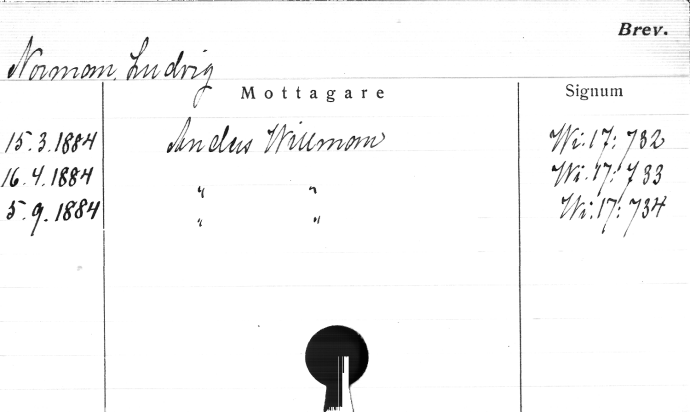 Brev.
Norman, Ludvig
Mottagare Signum
15.3.1884 Anders Willman Wi:17:732
16.4.1884 " " Wi:17:733
5.9.1884 " " Wi:17:734